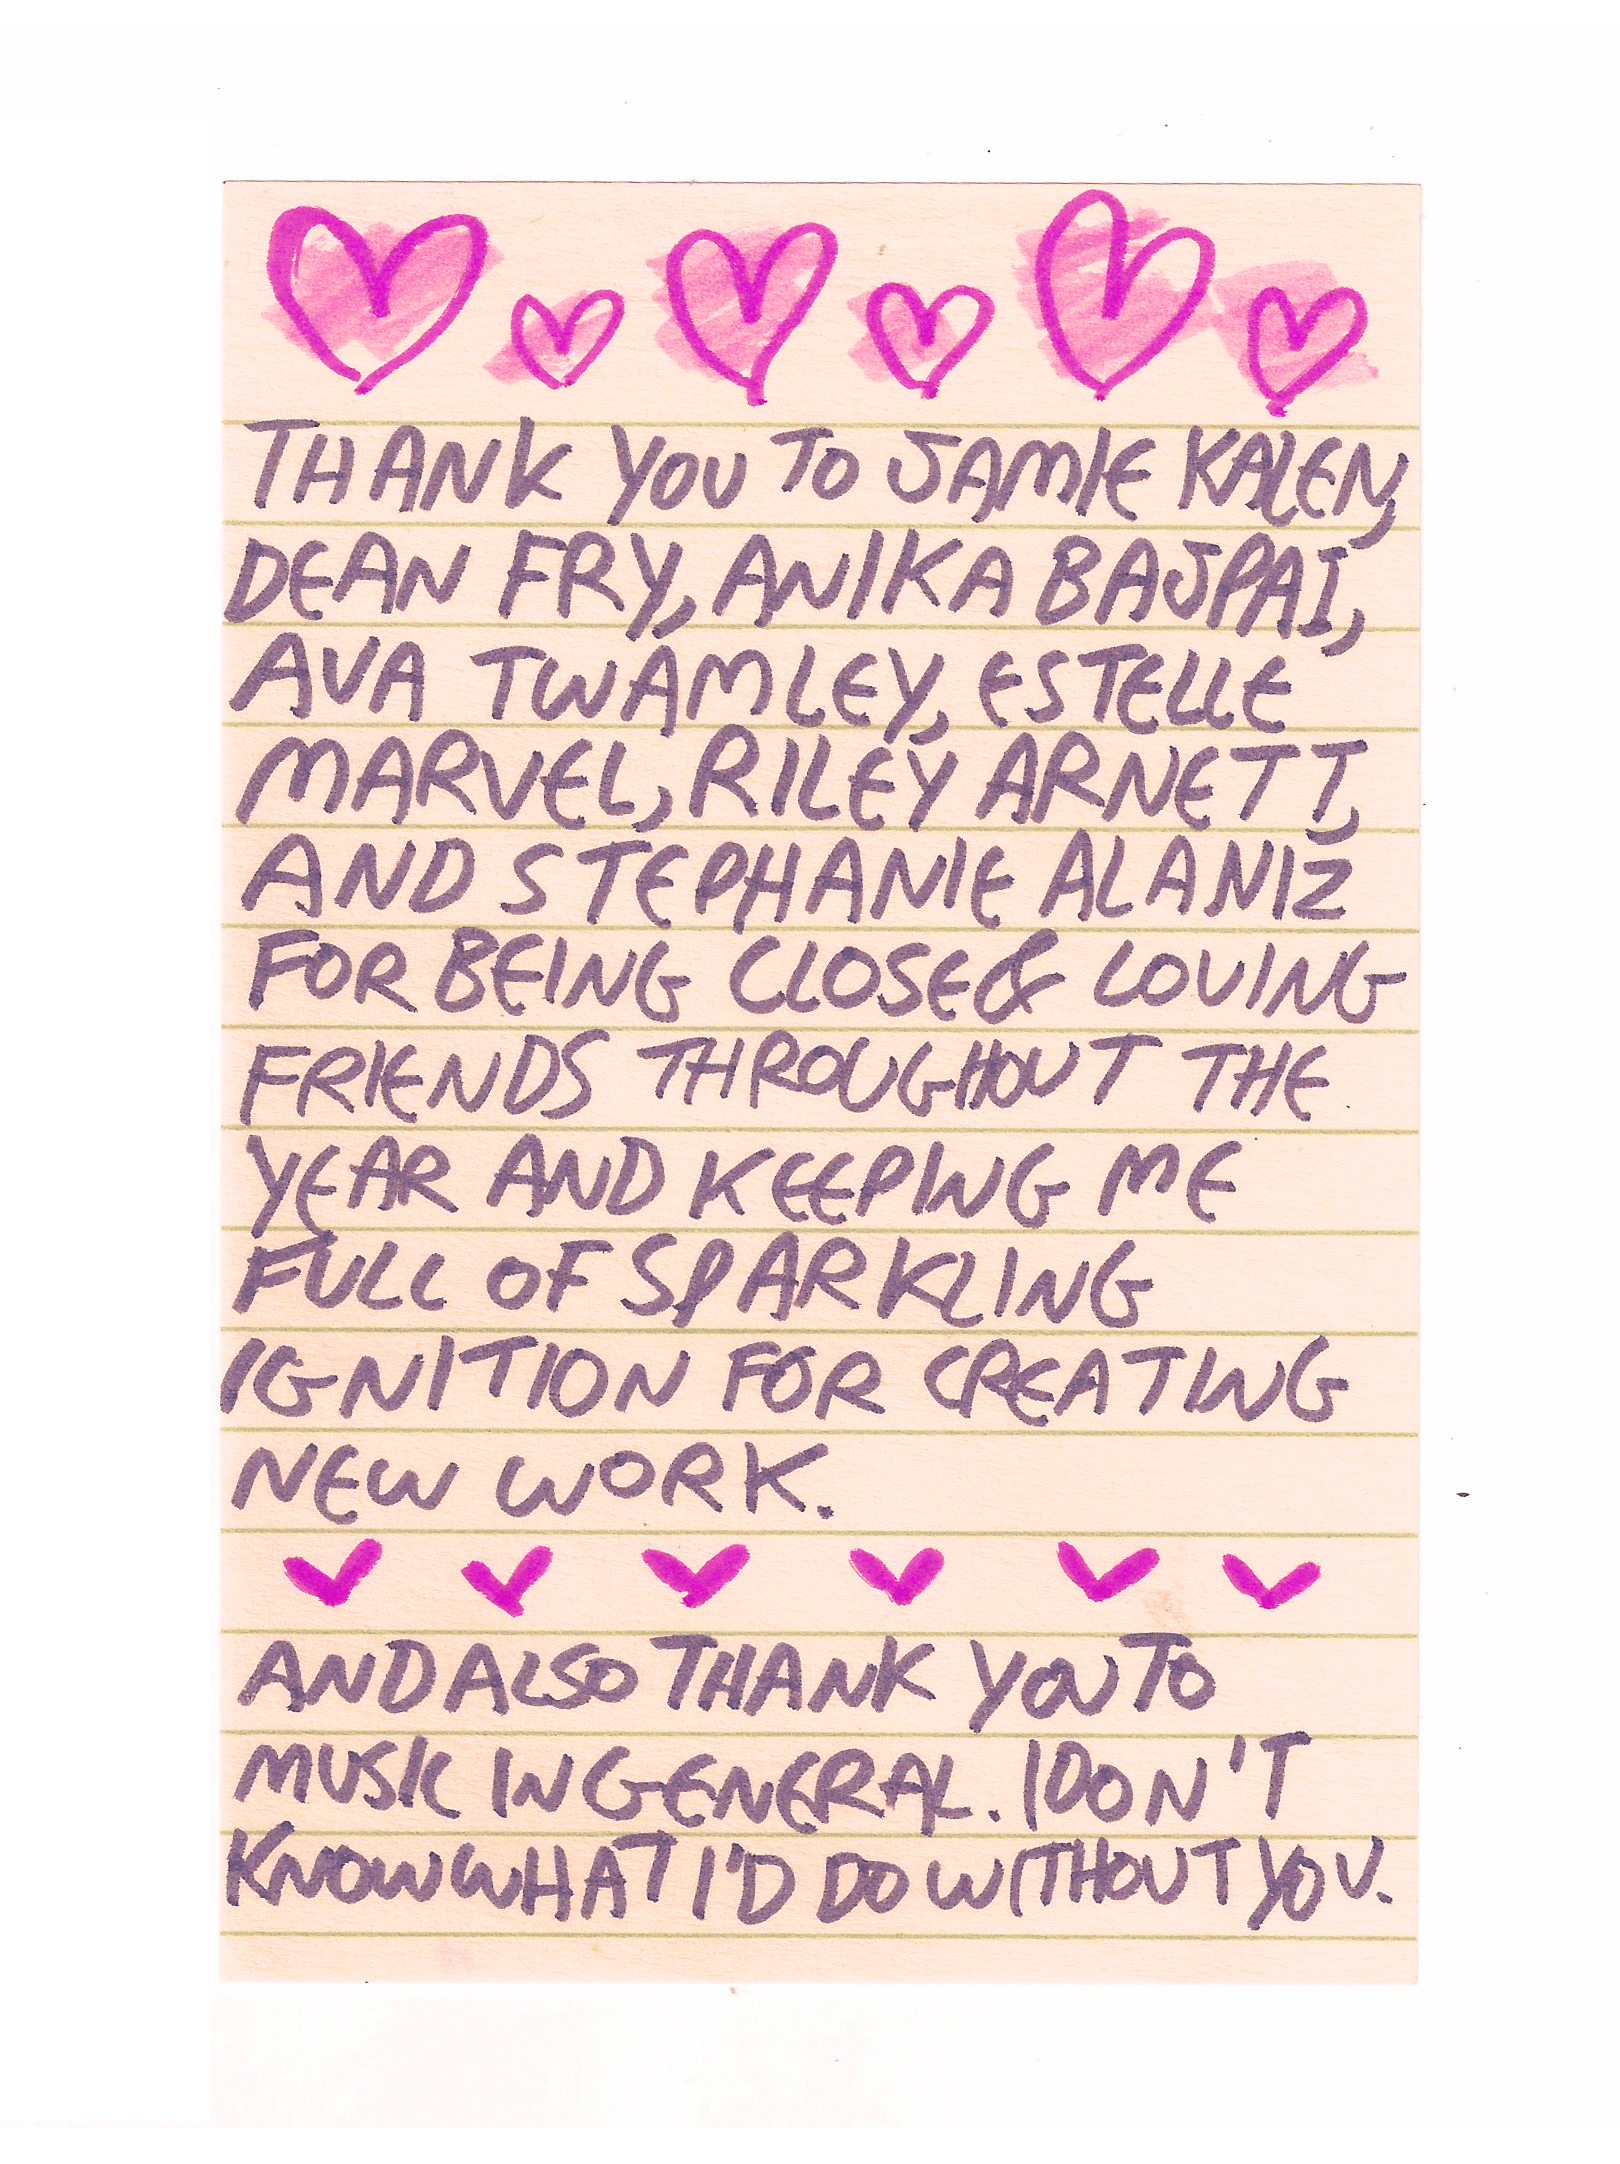 THANK YOU TO JAMIE KALEN,
DEAN FRY, ANIKA BAJPAI,
AVA TWAMLEY, ESTELLE
MARVEL, RILEY ARNETT,
AND STEPHANIE ALANIZ
FOR BEING CLOSE & LOVING
FRIENDS THROUGHOUT THE
YEAR AND KEEPING ME
FULL OF SPARKLING
IGNITION FOR CREATING
NEW WORK.
AND ALSO THANK YOU TO
MUSIC IN GENERAL. I DON'T
KNOW WHAT I'D DO WITHOUT YOU.